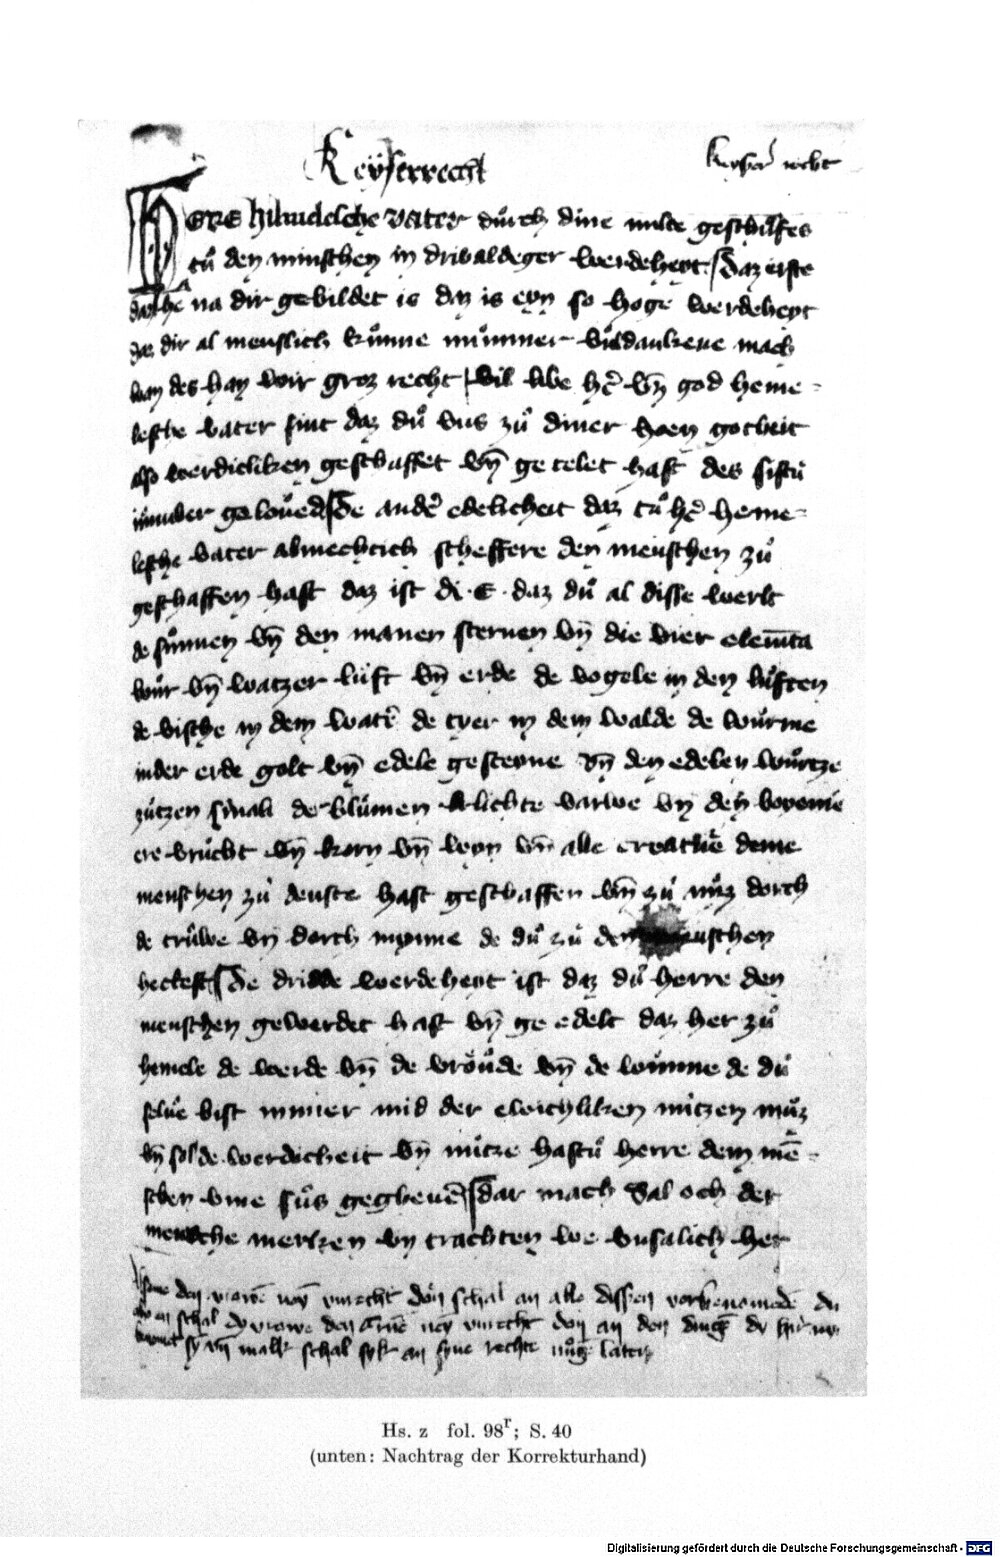 Keyserrecht
keyser recht
HERE hiimdelsche vater durch dine milde geschůfes
tů den minschen in drivaldeger werdeheyt daz erste
daz he na dir gebildet is daz is eyn so hoge werdeheyt
daz dir al menslich kůnne nůmmer vůldankene mach
wan des hay wir groz recht vil libe hẽ vñ god heme-
lesche vater sint daz dů vns zů diner hoen gotheit
also werdichliken geschaffet vñ getelet hast des sistů
geloůed De ander edelicheit daz tů hẽ heme-
lesche vater almechtich scheffere den menschen zů
geschaffen hast daz ist di .E. daz dů al disse werlt
de sůnnen vñ den manen sternen vñ die vier elemẽta
vůr vñ watzer luft vñ erde de vogele in den lůften
de vische in dem watẽ de tyer in dem walde de wůrme
in der erde golt vñ edele gesteyne vñ den edelen wůrtze
de blůmen lichte varwe vñ den boyome
ere vrůcht vñ korn vñ wyn vñ alle creatůrẽ deme
menschen zů denste hast geschaffen vñ zů nůz dorch
de trůwe vñ dorch mynne de dů zů den menschen
hettest De dridde werdeheyt ist daz dů herre den
menschen gewerdet hast vñ ge edelt daz her zů
hemele de werde vñ de vroůde vñ de wůnne de dů
selue bist immer mid der ewichliken nůtzen můz
vñ solde werdicheit vñ nůtze hastů herre dem mẽ-
schen vme sůs gegheuẽ dar mach wal och der
mensche merken vñ trachten we vnsalich her
den vrowẽ vnrecht don schal an alle dissen vorbenomedẽ
schal vrowe den vnrecht don an den dingẽ
vñ malk schal syk an syne rechte nůgẽ laten
Hs. z fol. 98r; S. 40
(unten: Nachtrag der Korrekturhand)
Digitalisierung gefördert durch die Deutsche Forschungsgemeinschaft - DFG